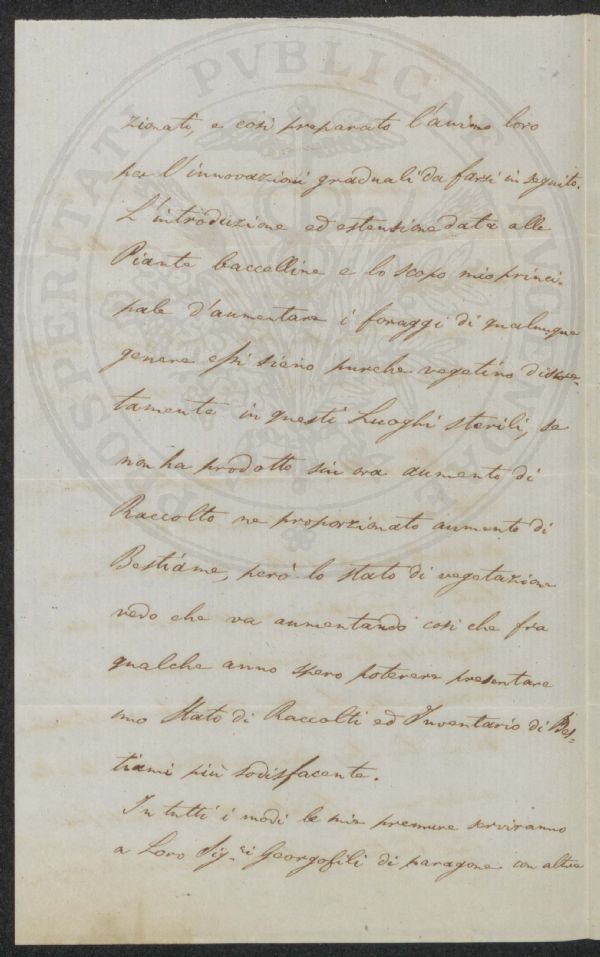 zionati, e così preparato l'animo loro
per l'innovazioni graduali da farsi in seguito.
L'introduzione ed estensione data alle
Piante baccelline e lo scopo mio princi-
pale d'aumentare i foraggi di qualunque
genere essi sieno purche vegetino discre-
tamente in questi Luoghi sterili, se
non ha prodotto sin ora aumento di
Raccolto ne proporzionato aumento di
Bestiame, però lo stato di vegetazione
vedo che va aumentando così che fra
qualche anno spero poterere presentare
uno Stato di Raccolti ed Inventario di Bes-
tiami più sodisfacente.
In tutti i modi le mie premure serviranno
a Loro Sig.ri Georgofili di paragone con altre
PROSPERITATI PVBLICAE AVGENDAE